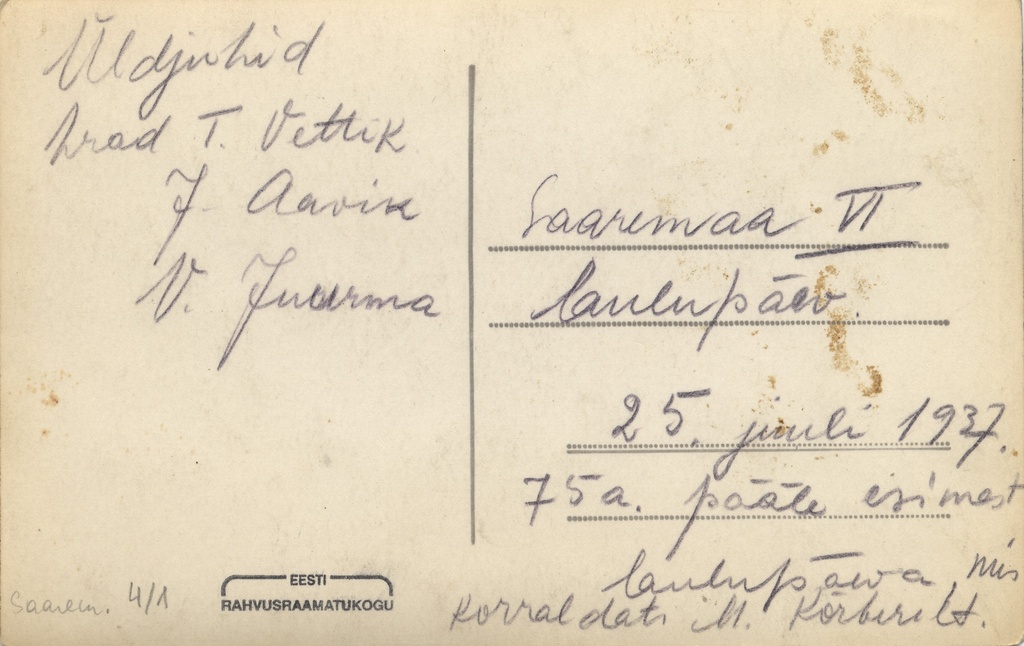 Üldjuhid
hrad T. Vettik
J. Aavik
V. Juurma
Saaremaa VI
laulupäev.
25. juuli 1937.
75a. pääle esimest
laulupäeva, mis
korraldati M. Körberilt.
Saarem. 4/1
EESTI
RAHVUSRAAMATUKOGU